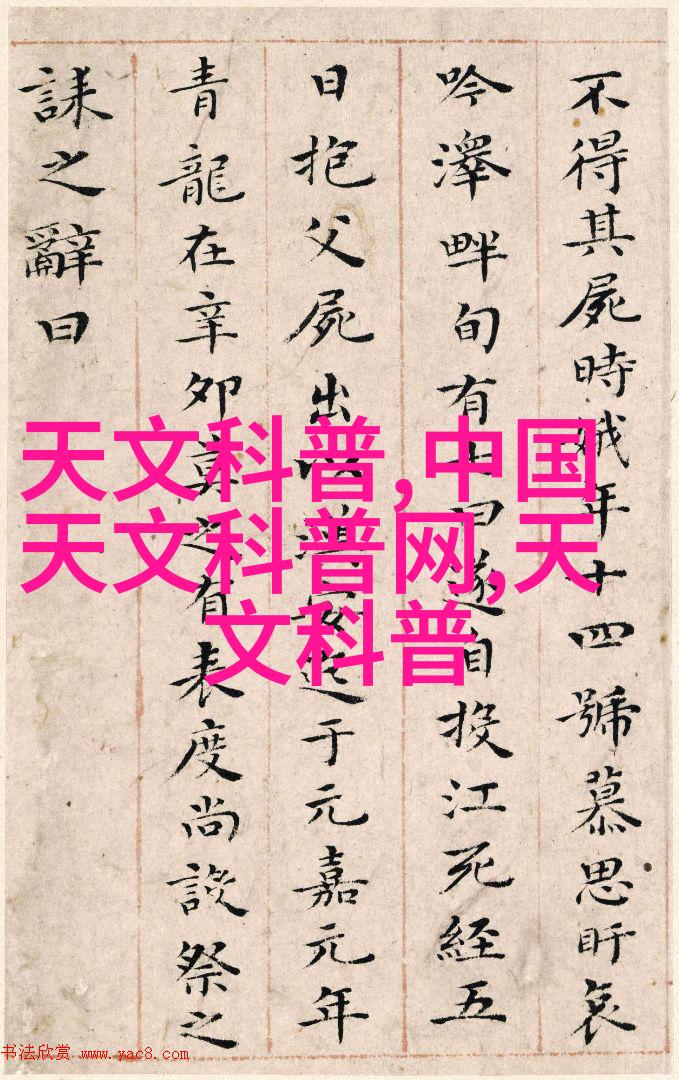 不得其屍時娥年十四號慕思盱哀
吟澤畔旬有七日遂自投江死經五
日抱父屍出以漢安迄于元嘉元年
青龍在辛卯莫之有表度尚設祭之
誄之辭曰
天文科普,中国
天文科普网,天
文科普
书法欣赏 www.yac8.com